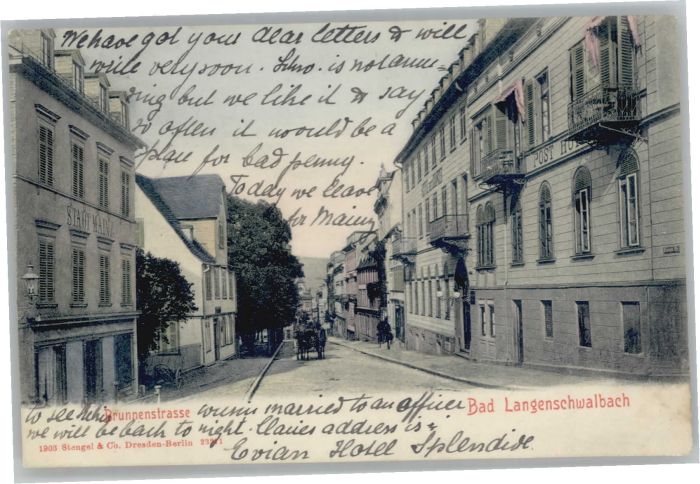 We have got your dear letters & will
write very soon. Schw. is not amu-
sing but we like it & say
so often it would be a
place for bad penny.
Today we leave
for Mainz
STADT MAINZ
POST HO
to see the
Brunnenstrasse
married to an officer
Bad Langenschwalbach
we will be back to night. Claires address is-
1903 Stengel & Co. Dresden-Berlin
Evian Hotel Splendide.